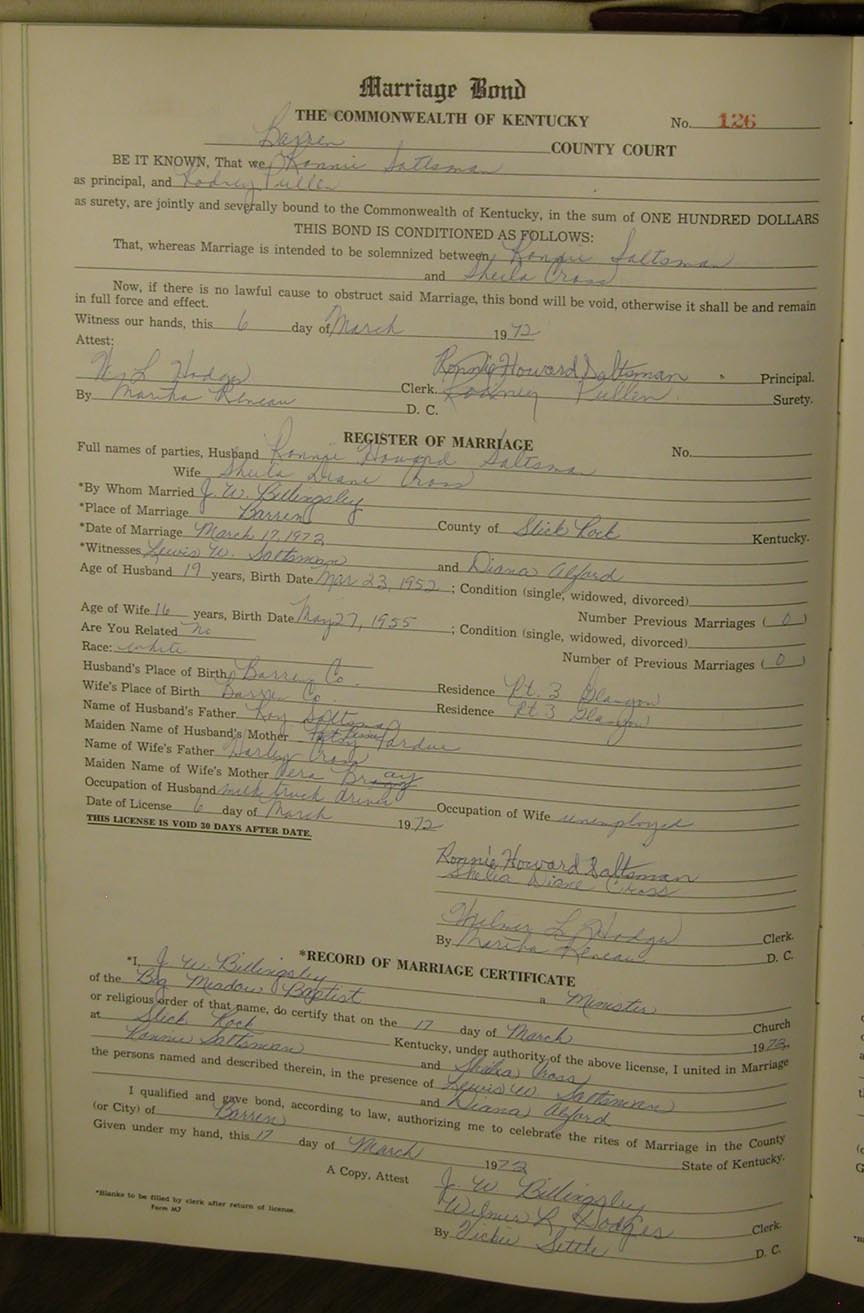 Marriage Bond
THE COMMONWEALTH OF KENTUCKY No. 126
Barren COUNTY COURT
BE IT KNOWN, That we Ronnie Saltsman
as principal, and Rodney Pullen
as surety, are jointly and severally bound to the Commonwealth of Kentucky, in the sum of ONE HUNDRED DOLLARS
THIS BOND IS CONDITIONED AS FOLLOWS:
That, whereas Marriage is intended to be solemnized between Ronnie Saltsman
and Sheila Cross
Now, if there is no lawful cause to obstruct said Marriage, this bond will be void, otherwise it shall be and remain
in full force and effect.
Witness our hands, this 6 day of March 1972
Attest:
W. L. Hodges Clerk. Ronnie Howard Saltsman Principal.
By Martha Reneau D. C. Rodney Pullen Surety.
REGISTER OF MARRIAGE
Full names of parties, Husband Ronnie Howard Saltsman No.
Wife Sheila Diane Cross
*By Whom Married J. W. Billingsley
*Place of Marriage Barren County of Slick Rock Kentucky.
*Date of Marriage March 17, 1972
*Witnesses Lewis W. Saltsman and Diana Alford
Age of Husband 19 years, Birth Date Mar 23, 1952; Condition (single, widowed, divorced)
Number Previous Marriages (0)
Age of Wife 16 years, Birth Date May 27, 1955; Condition (single, widowed, divorced)
Are You Related no Number of Previous Marriages (0)
Race: white
Husband's Place of Birth Barren Co. Residence Rt. 3 Glasgow
Wife's Place of Birth Barren Co. Residence Rt 3 Glasgow
Name of Husband's Father Roy Saltsman
Maiden Name of Husband's Mother Pardue
Name of Wife's Father Harley Cross
Maiden Name of Wife's Mother Vera
Occupation of Husband milk truck driver Occupation of Wife unemployed
Date of License 6 day of March 1972
THIS LICENSE IS VOID 30 DAYS AFTER DATE.
Ronnie Howard Saltsman
Shelia Diane Cross
Wilmer L. Hodges Clerk.
By Martha Reneau D. C.
*RECORD OF MARRIAGE CERTIFICATE
*I, J. W. Billingsley a Minister
of the Big Meadow Baptist Church
or religious order of that name, do certify that on the 17 day of March 1972,
at Slick Rock Kentucky, under authority of the above license, I united in Marriage
Ronnie Saltsman and Shelia Cross
the persons named and described therein, in the presence of Lewis W Saltsman
and Diana Alford
I qualified and gave bond, according to law, authorizing me to celebrate the rites of Marriage in the County
(or City) of Barren State of Kentucky.
Given under my hand, this 17 day of March 1972
A Copy, Attest J. W Billingsley
Wilmer L. Hodges Clerk.
By Vickie Settle D. C.
*Blanks to be filled by clerk after return of license.
Form M7